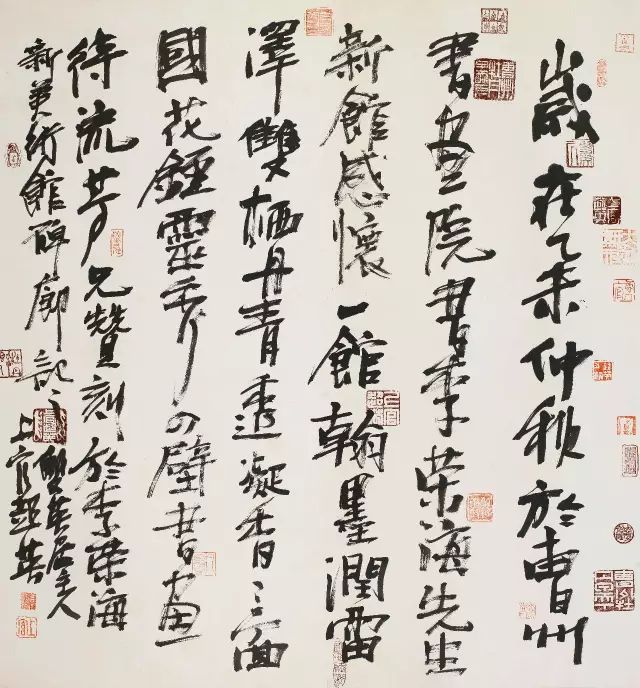 歲在乙未仲秋於曹州
書畫院書李荣海先生
新館感懷一館翰墨潤雷
澤雙栖丹青透凝香三面
國花鍾靈秀四壁書画
待流芳兄贊刻於李荣海
新美術館碑廊記之
上官超英